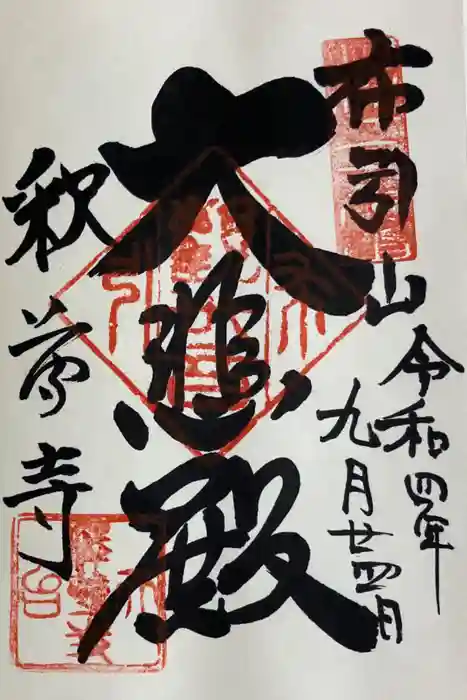 布引山
令和四年
九月廿四日
大悲殿
釈尊寺